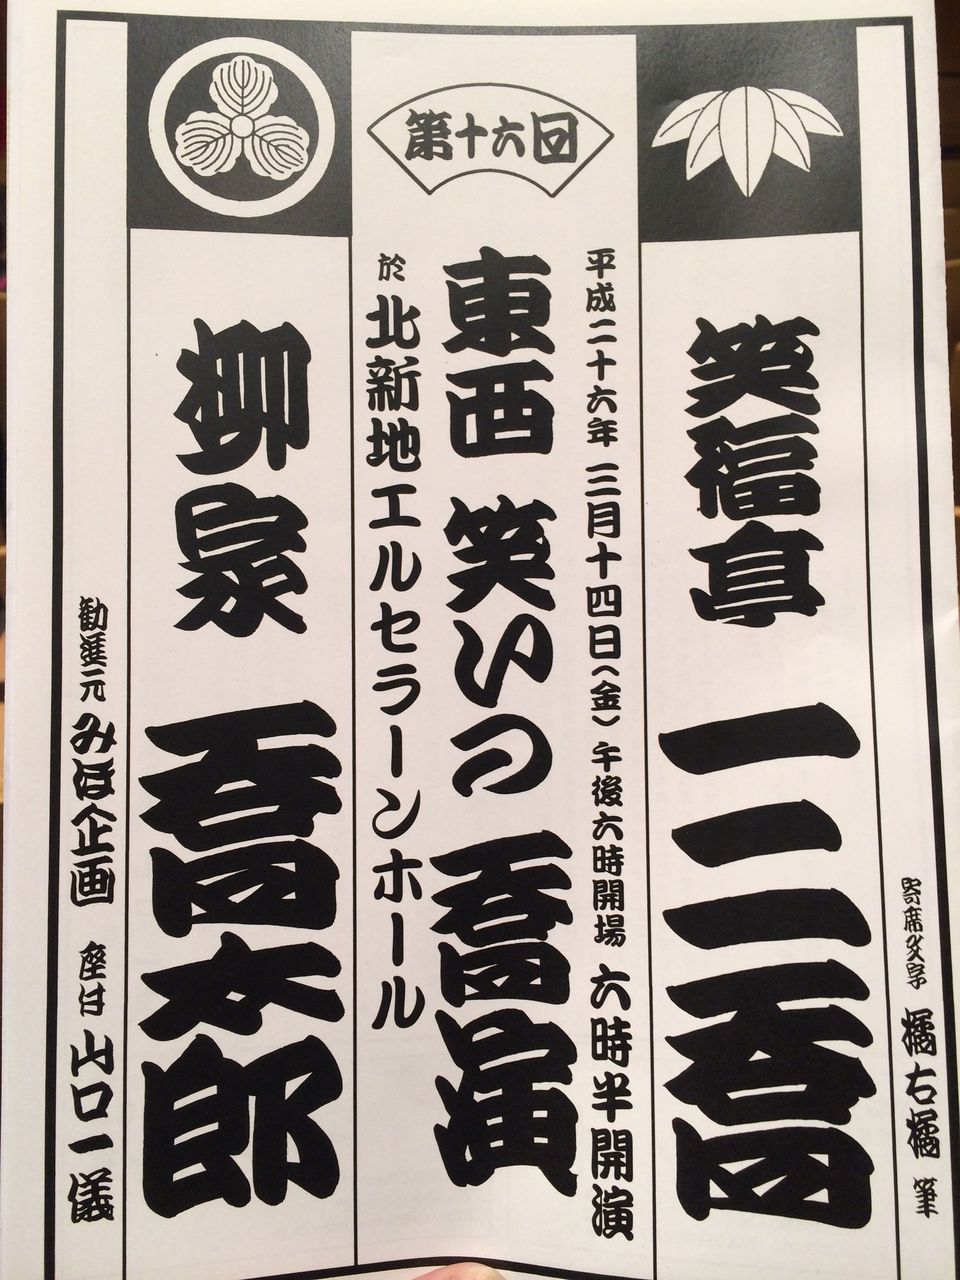 寄席文字 橘右橘 筆
笑福亭 三喬
平成二十六年 三月十四日(金) 午後六時開場 六時半開演
第十六回
東西 笑いの 喬演
於 北新地エルセラーンホール
柳家 喬太郎
勧進元 みほ企画 座付 山口一儀